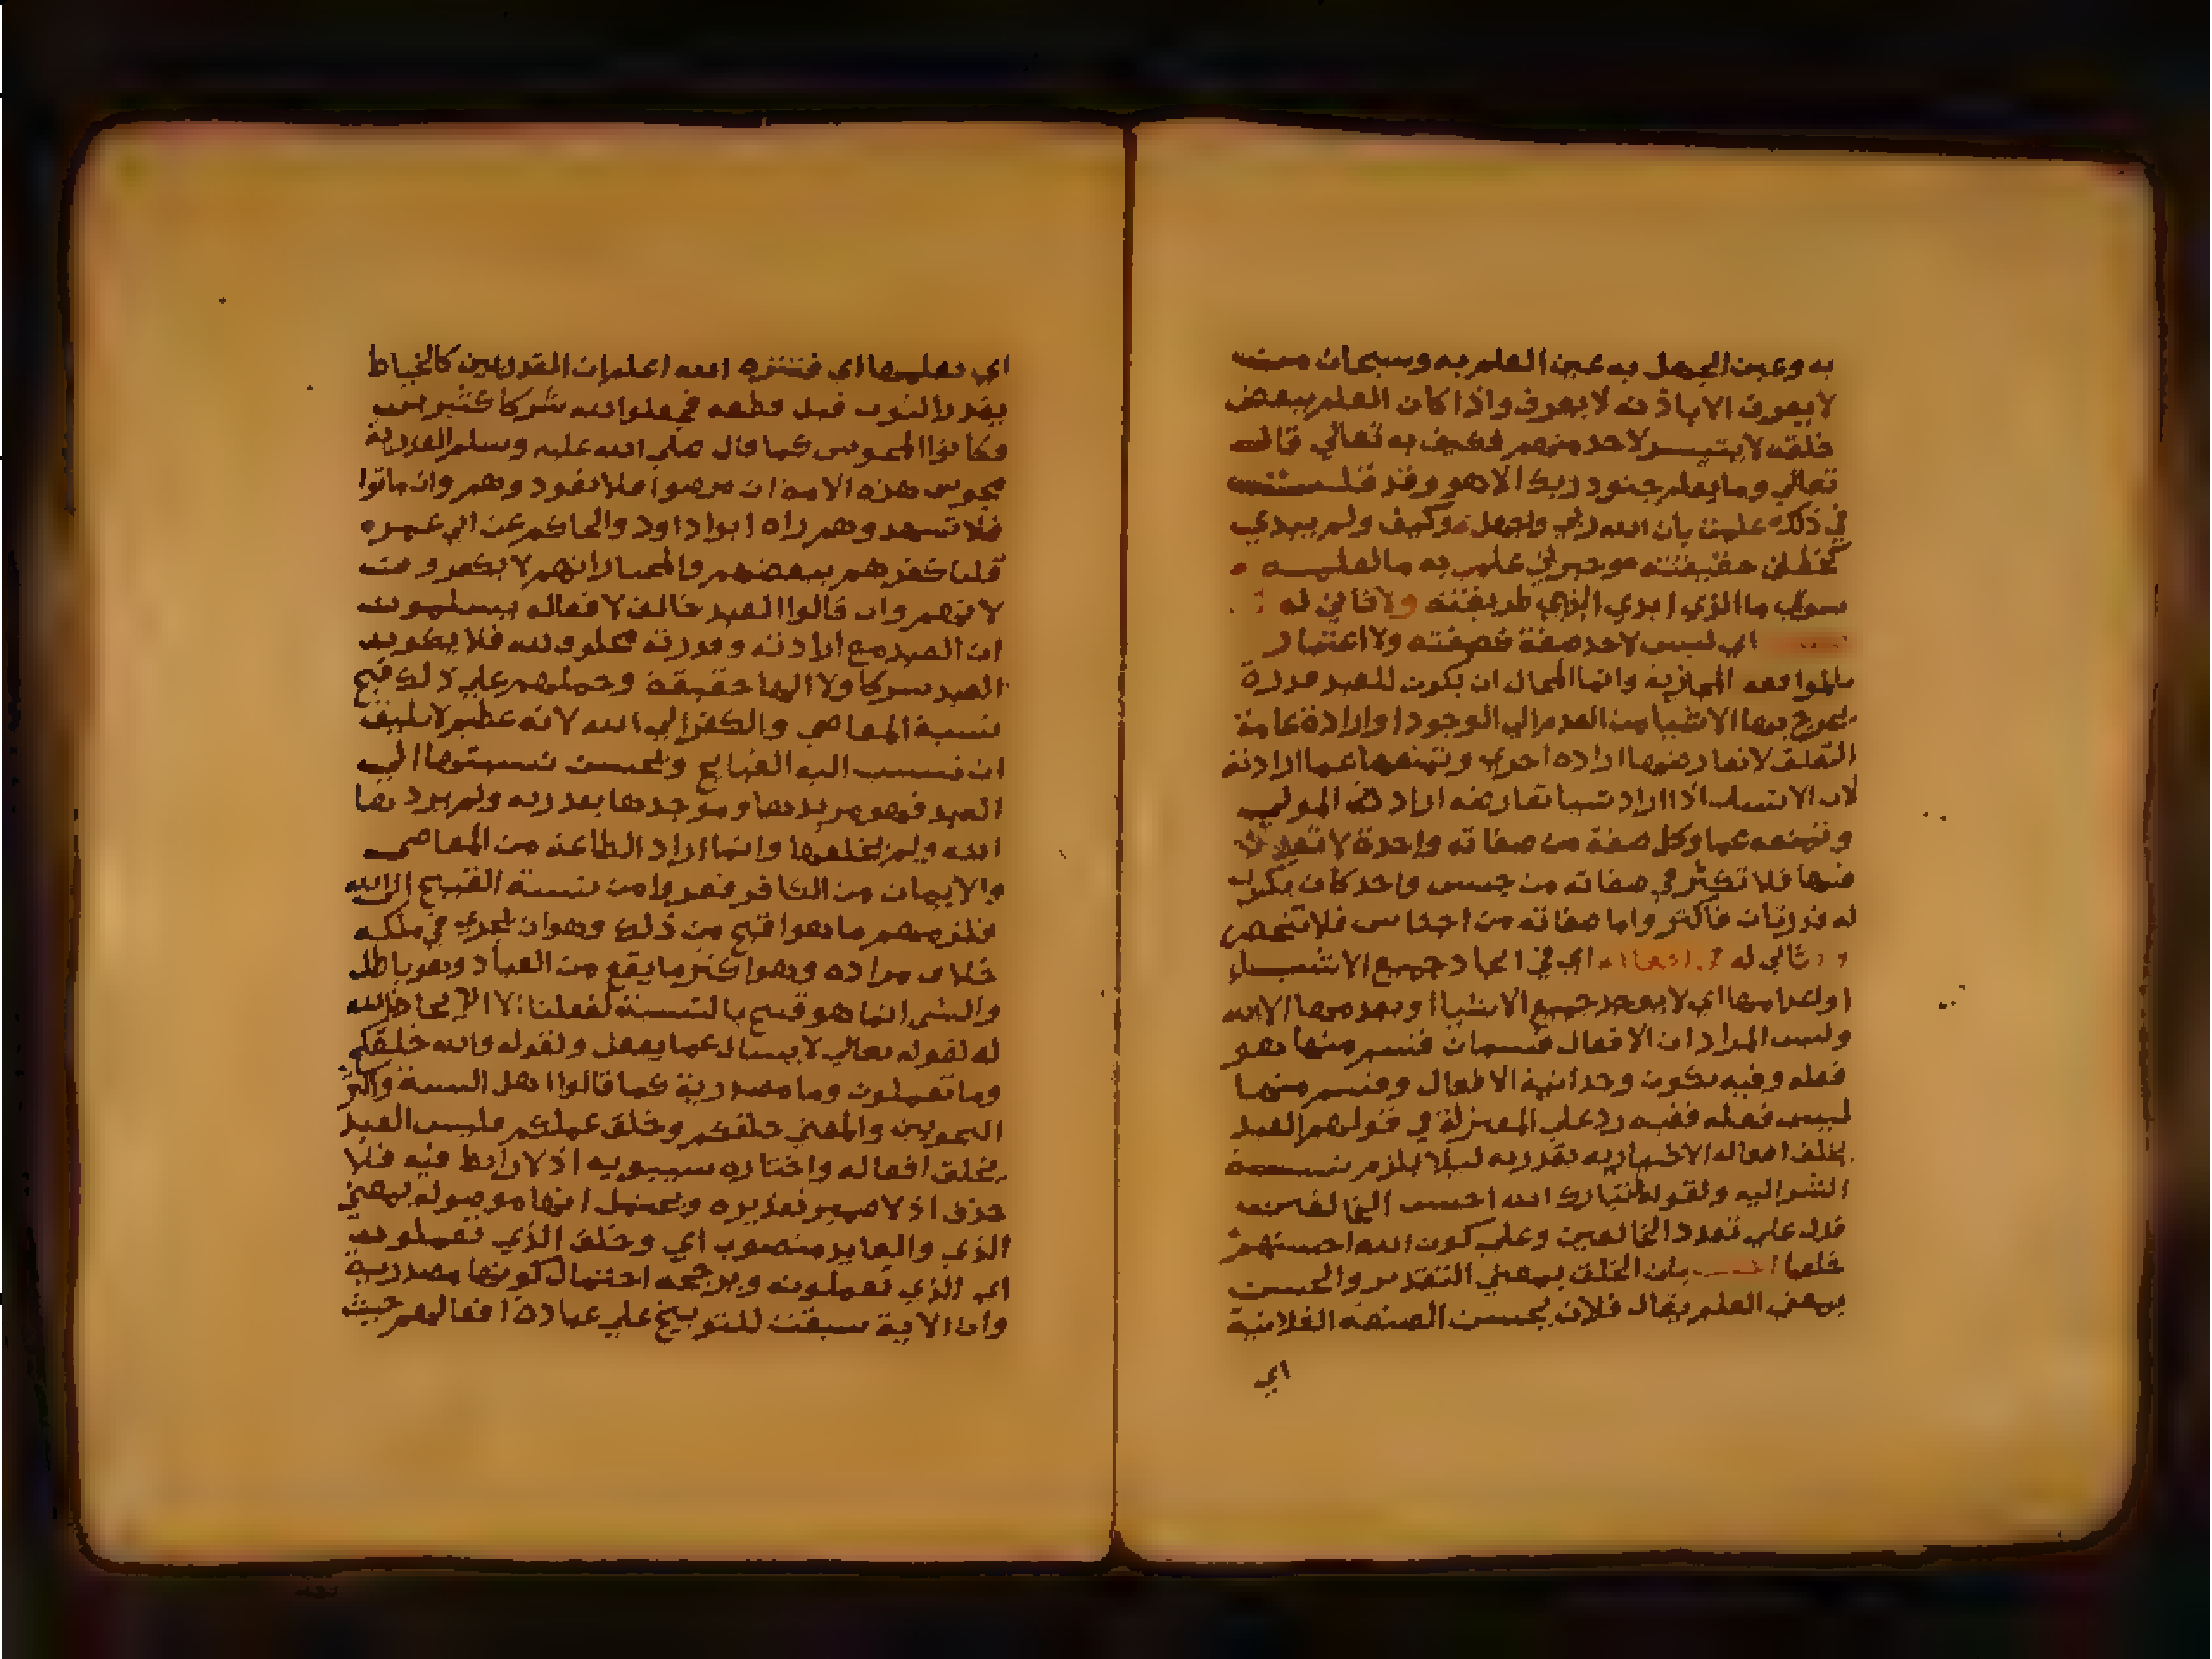 به وعين الجهل به عين العلم به وسبحان من
لا يعرف الا باذنه لا يعرف واذا كان العلم ببعض
خلقه لا يتيسر لاحد منهم فكيف به تعالي قال
تعالي وما يعلم جنود ربك الا هو وقد قلت
في ذلك علمت بان الله ربي ولم يبدي
حقيقته علمي به ما
سوي ما الذي ابدي الذي طريقته ولا ثاني له
اي ليس لاحد صفة كصفته ولا اعتبار
بالموافقه المجازية وانما المحال ان يكون للعبد قدرة
يخرج بها الاشيا من العدم الي الوجود او ارادة عامة
التعلق لا تعارضها اراده اخري وتمنعها عما ارادته
لان الانسان اذا اراد شيا تعارضه ارادة المولي
وتمنعه عما وكل صفة من صفاته واحدة لا تعدد
فيها فلا تكثر في صفاته من جنس واحد كان يكون
له قدرتان فاكثر واما صفاته من اجناس فلا تنحصر
ولا ثاني له في افعاله اي في ايجاد جميع الاشياء
او اعدامها اي لا يوجد جميع الاشيا او يعدمها الا الله
وليس المراد ان الافعال قسمان قسم منها هو
فعله وفيه يكون وحدانية الافعال وقسم منها
ليس فعله ففيه رد علي المعتزلة في قولهم العبد
يخلق افعاله الاختياريه بقدرته ليلا يلزم نسبة
الشر اليه ولقوله تبارك الله احسن الخالقين
فدل علي تعدد الخالقين وعلي كون الله احسنهم
خلقا بان الخلق بمعني التقدير والحسن
بمعني العلم يقال فلان يحسن الصنعة الفلانية
اي
اي يعلمها اي فتنزه الله اعلم المقدرين كالخياط
يقدر الثوب قبل قطعه فجعلوا لله شركا كثيرين
وكانوا المجوس كما قال صلي الله عليه وسلم القدرية
مجوس هذه الامة ان مرضوا فلا تعودوهم وان ماتوا
فلا تشهدوهم رواه ابوا داود والحاكم عن ابي عمره
قلنا كفرهم بعضهم والمختار انهم لا يكفرون
لانهم وان قالوا العبد خالق لافعاله يسلمون
ان العبد مع ارادته وقدرته مخلوق لله فلا يكون
العبد شركا ولا الها حقيقة وحملهم علي ذلك قبح
نسبة المعاصي والكفر الي الله لانه عظيم لا يليق
ان ننسب اليه القبايح ويحسن نسبتها الي
العبد فهو مريدها وموجدها بقدرته ولم يردها
الله ولم يخلقها وانما اراد الطاعة من العاصي
والايمان من الكافر فهربوا من نسبة القبيح الي الله
فلزمهم ما هو اقبح من ذلك وهو ان يجري في ملكه
خلاف مراده وهو اكثر ما يقع من العباد وهو باطل
والشي انما هو قبيح بالنسبة لفعلنا لا لايجاد الله
له لقوله تعالي لا يسال عما يفعل ولقوله والله خلقكم
وما تعملون وما مصدرية كما قالوا اهل السنة واكثر
النحويين والمعني خلقكم وخلق عملكم فليس العبد
يخلق افعاله واختاره سيبويه اذ لا رابط فيه فلا
حذف اذ لا ضمير نقديره ويحتمل انها موصوله بمعني
الذي والعايد منصوب اي وخلق الذي تعملونه
اي الذي تعملونه ويرجحه احتمال كونها مصدرية
وان الاية سيقت للتوبيخ علي عبادة افعالهم حيث